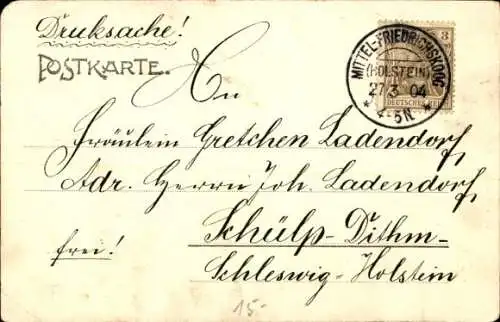 Drucksache!
POSTKARTE.
3
DEUTSCHES REICH
MITTEL-FRIEDRICHSKOOG
(HOLSTEIN)
27 3 04
* 4-5N. *
An
Fräulein Gretchen Ladendorf,
Adr. Herrn Joh. Ladendorf,
frei!
Schülp-Dithm-
Schleswig-Holstein
15-